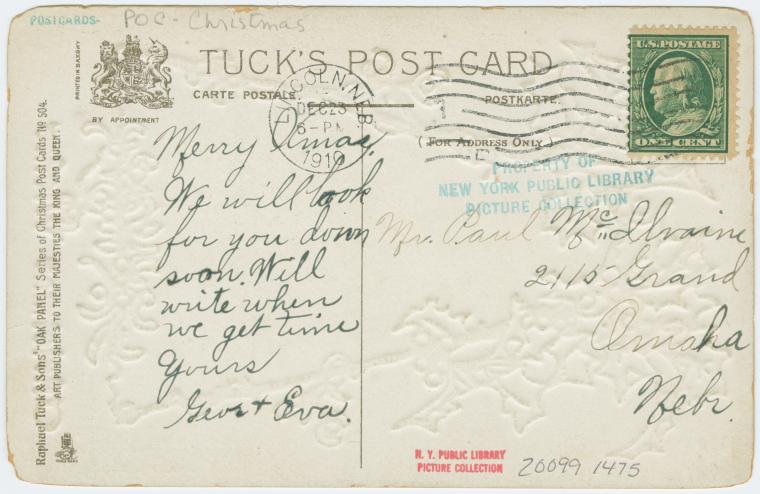 POSTCARDS-
POC - Christmas
TUCK'S POST CARD
CARTE POSTALE.
POSTKARTE.
(FOR ADDRESS ONLY.)
PRINTED IN SAXONY
BY APPOINTMENT
Raphael Tuck & Sons' "OAK PANEL" Series of Christmas Post Cards No 504.
ART PUBLISHERS TO THEIR MAJESTIES THE KING AND QUEEN.
LINCOLN, NEB.
DEC 23
6-PM
1910
U.S. POSTAGE
ONE CENT
PROPERTY OF
NEW YORK PUBLIC LIBRARY
PICTURE COLLECTION
Merry Xmas.
We will look
for you down
soon. Will
write when
we get time
Yours
Geo. + Eva.
Mr. Paul McIlvaine
2115 Grand
Omaha
Nebr.
N. Y. PUBLIC LIBRARY
PICTURE COLLECTION
20099 1475